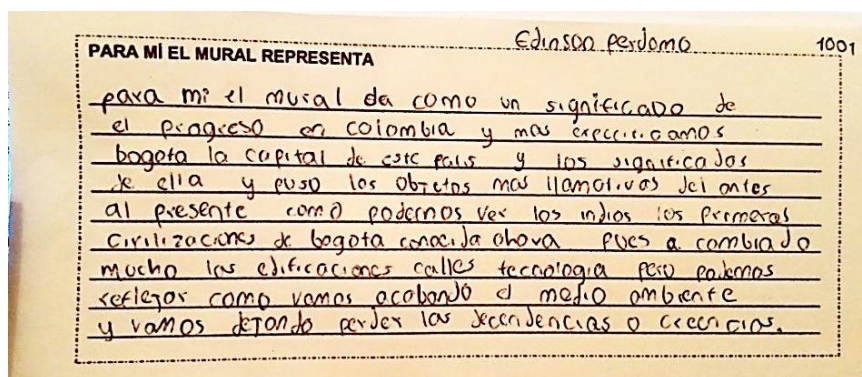 Edinson perdomo 1001
PARA MÍ EL MURAL REPRESENTA
para mi el mural da como un significado de
el progreso en colombia y mas especificamos
bogota la capital de este pais y los significados
de ella y puso los objetos mas llamativos del antes
al presente como podemos ver los indios los primeras
civilizaciones de bogota conocida ahora pues a cambiado
mucho las edificaciones calles tecnologia pero podemos
reflejar como vamos acabando el medio ambiente
y vamos dejando perder las decendencias o creencias.